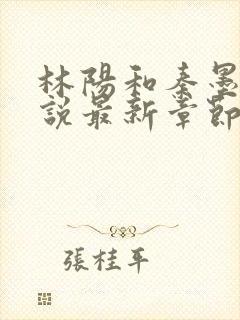 林陽和秦墨
說最新章節
張桂平